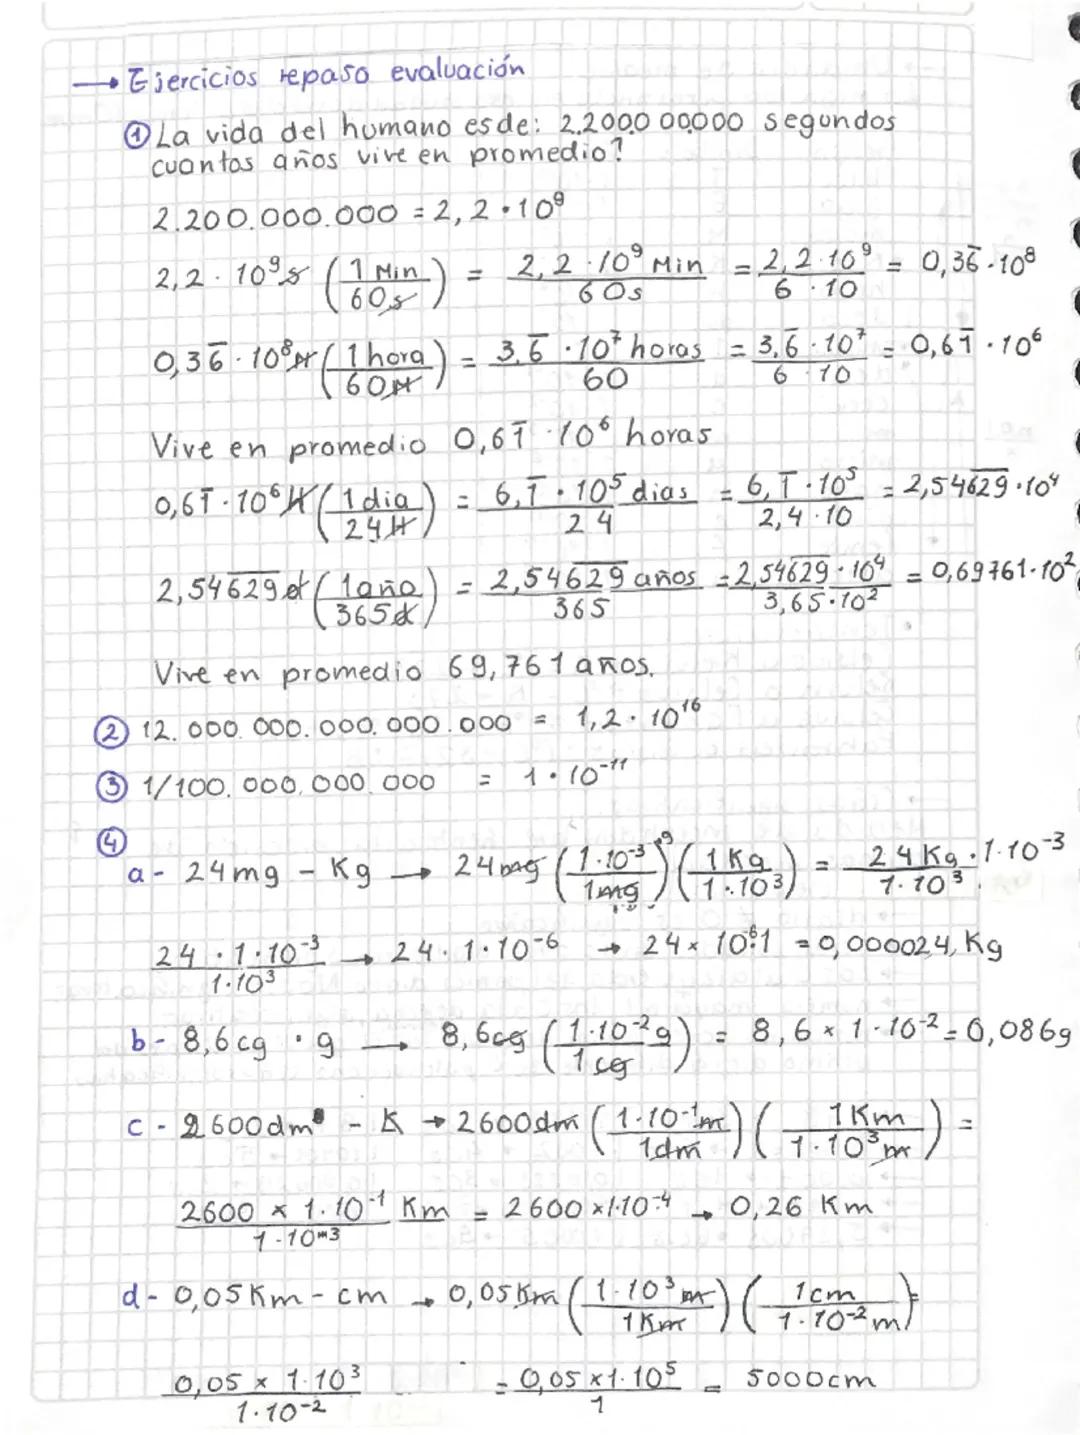 → Ejercicios repaso evaluación
① La vida del humano es de: 2.200.000.000 segundos
cuantos años vive en promedio?
2.200.000.000 = 2,2 · 10⁹
2,2 · 10⁹ s (1 Min / 60 s) = 2,2 · 10⁹ Min / 60s = 2,2 · 10⁹ / 6 · 10 = 0,36̅ · 10⁸
0,36̅ · 10⁸ M (1 hora / 60 M) = 3,6̅ · 10⁷ horas / 60 = 3,6̅ · 10⁷ / 6 · 10 = 0,61̅ · 10⁶
Vive en promedio 0,61̅ · 10⁶ horas
0,61̅ · 10⁶ H (1 dia / 24 H) = 6,1̅ · 10⁵ dias / 24 = 6,1̅ · 10⁵ / 2,4 · 10 = 2,546̅2̅9̅ · 10⁴
2,546̅2̅9̅ d (1 año / 365 d) = 2,546̅2̅9̅ años / 365 = 2,546̅2̅9̅ · 10⁴ / 3,65 · 10² = 0,69761 · 10²
Vive en promedio 69,761 años.
② 12.000.000.000.000.000 = 1,2 · 10¹⁶
③ 1/100.000.000.000 = 1 · 10⁻¹¹
④
a - 24mg - Kg → 24 mg (1·10⁻³ g / 1mg) (1 Kg / 1·10³) = 24 Kg · 1·10⁻³ / 1·10³
24 · 1·10⁻³ / 1·10³ → 24 · 1·10⁻⁶ → 24 × 10⁻⁶ = 0,000024 Kg
b - 8,6cg · g → 8,6cg (1·10⁻² g / 1 cg) = 8,6 × 1·10⁻² = 0,086g
c - 2600dm - K → 2600dm (1·10⁻¹ m / 1dm) (1Km / 1·10³ m) =
2600 × 1·10⁻¹ Km / 1·10³ = 2600 × 1·10⁻⁴ → 0,26 Km
d - 0,05Km - cm → 0,05Km (1·10³ m / 1Km) (1cm / 1·10⁻² m) =
0,05 × 1·10³ / 1·10⁻² = 0,05 × 1·10⁵ / 1 = 5000cm